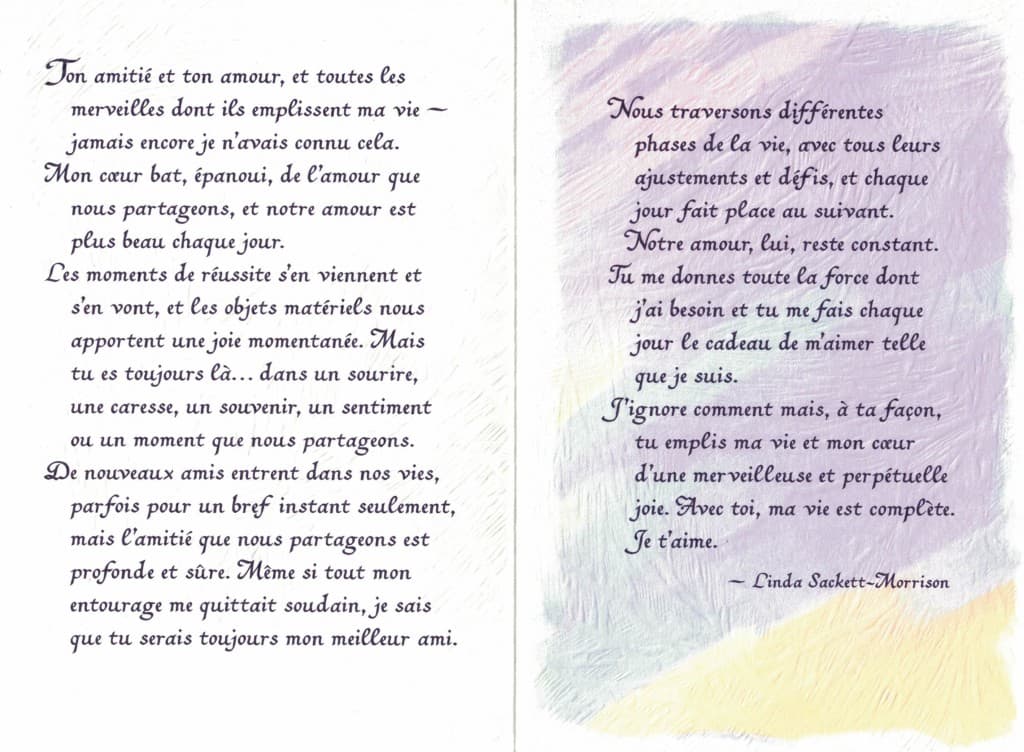 Ton amitié et ton amour, et toutes les
merveilles dont ils emplissent ma vie —
jamais encore je n'avais connu cela.
Mon cœur bat, épanoui, de l'amour que
nous partageons, et notre amour est
plus beau chaque jour.
Les moments de réussite s'en viennent et
s'en vont, et les objets matériels nous
apportent une joie momentanée. Mais
tu es toujours là... dans un sourire,
une caresse, un souvenir, un sentiment
ou un moment que nous partageons.
De nouveaux amis entrent dans nos vies,
parfois pour un bref instant seulement,
mais l'amitié que nous partageons est
profonde et sûre. Même si tout mon
entourage me quittait soudain, je sais
que tu serais toujours mon meilleur ami.
Nous traversons différentes
phases de la vie, avec tous leurs
ajustements et défis, et chaque
jour fait place au suivant.
Notre amour, lui, reste constant.
Tu me donnes toute la force dont
j'ai besoin et tu me fais chaque
jour le cadeau de m'aimer telle
que je suis.
J'ignore comment mais, à ta façon,
tu emplis ma vie et mon cœur
d'une merveilleuse et perpétuelle
joie. Avec toi, ma vie est complète.
Je t'aime.
— Linda Sackett-Morrison